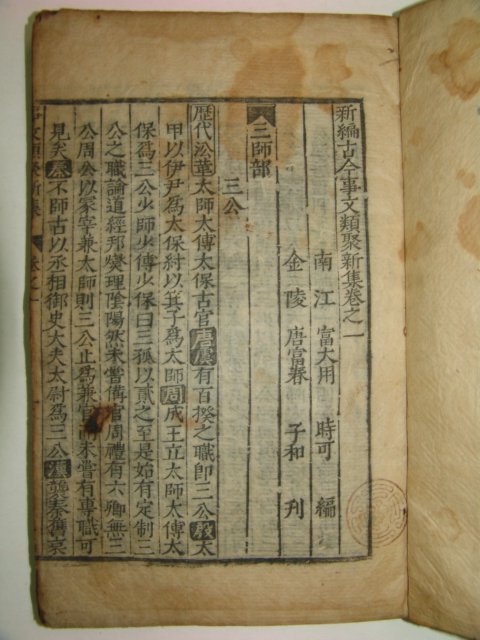 新編古今事文類聚新集卷之一
南江 富大用 時可 編
金陵 唐富春 子和 刋
三師部
三公
歷代沿革太師太傅太保古官唐虞有百揆之職即三公殷太
甲以伊尹爲太保紂以箕子爲太師周成王立太師太傅太
保爲三公少師少傅少保曰三孤以貳之至是始有定制三
公之職論道經邦燮理陰陽然未嘗備官周禮有六卿無三
公周公以冢宰兼太師則三公止爲兼官而未嘗有專職可
見矣秦不師古以丞相御史大夫太尉爲三公漢襲秦舊哀
文類聚新集 卷之一